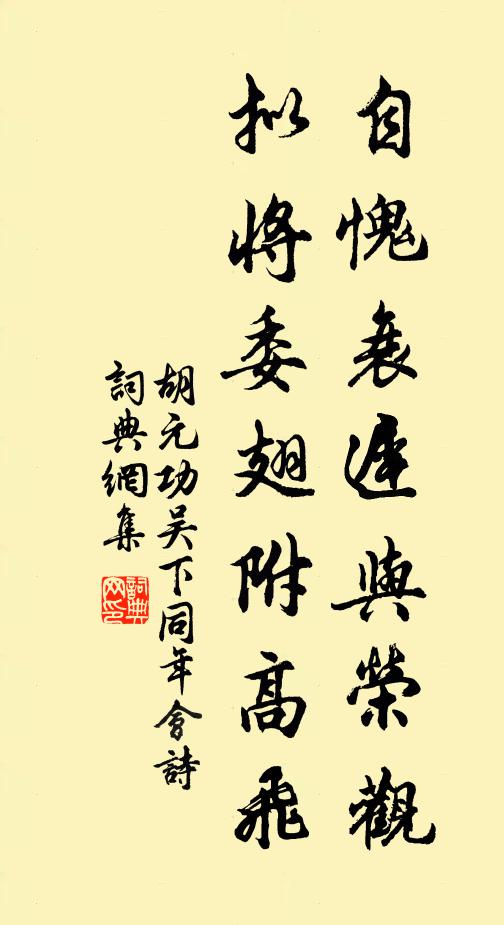 自愧衰遲與榮觀
拟將委翅附高飛
胡元功吴下同年會詩
詞典網集
詞典网印